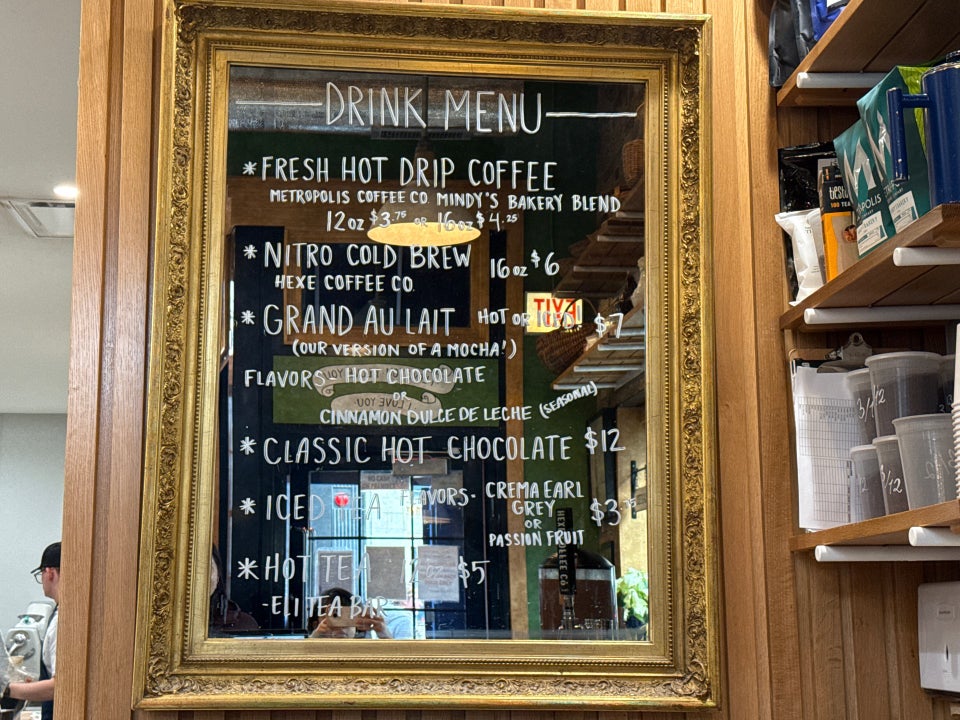 DRINK MENU
*FRESH HOT DRIP COFFEE
METROPOLIS COFFEE CO MINDY'S BAKERY BLEND
12oz $3.75 OR 16oz $4.25
*NITRO COLD BREW 16oz $6
HEXE COFFEE CO.
*GRAND AU LAIT HOT OR ICED! $7
(OUR VERSION OF A MOCHA!)
FLAVORS: HOT CHOCOLATE
OR
CINNAMON DULCE DE LECHE (SEASONAL)
*CLASSIC HOT CHOCOLATE $12
*ICED TEA FLAVORS- CREMA EARL
GREY
OR
PASSION FRUIT
$3.75
*HOT TEA 12oz $5
-ELI TEA BAR
EXIT
I LOVE YOU
HEXE COFFEE CO